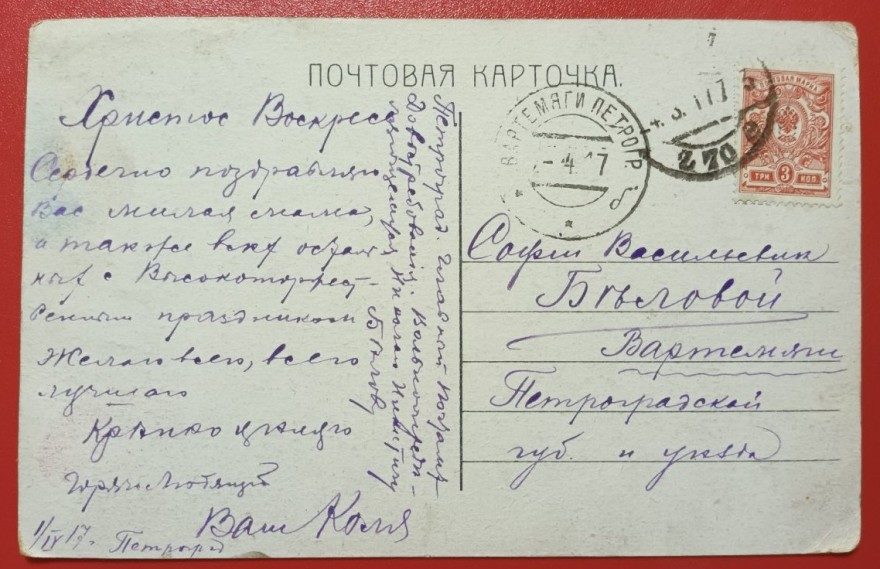 ПОЧТОВАЯ КАРТОЧКА.
Христос Воскресе
Сердечно поздравляю
Вас милая мама,
а также всѣх осталь
ныѣ с Высокоторжест-
венным праздником
Желаю всего, всего
лучшаго
Крѣпко цѣлую
Горячо Любящий
Ваш Коля
1/IV 17 г. Петроград
Петроград. Главный Почтамт
До востребованія. Вольноопредѣ-
ляющемуся Николаю Никитичу
Бѣлову
ВАРТЕМЯГИ ПЕТРОГР.
-4 17
4.3.17
ТРИ 3 КОП.
Софии Васильевне
Бѣловой
Вартемяги
Петроградской
губ. и уѣзда